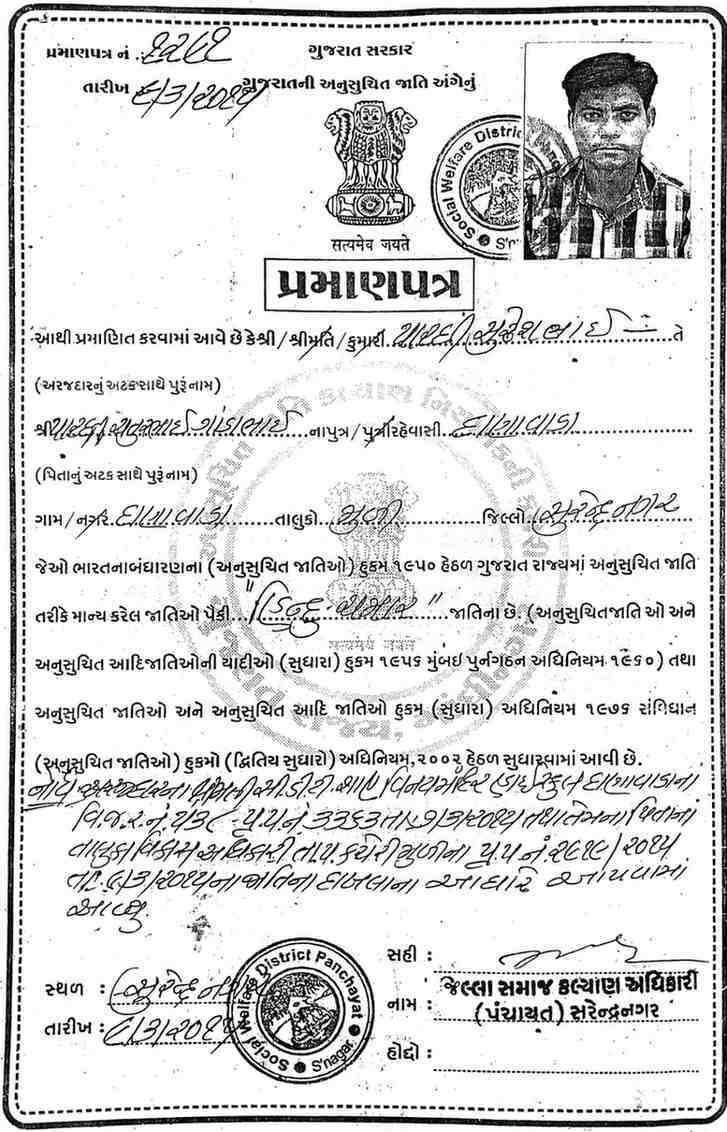 પ્રમાણપત્ર નં .
ગુજરાત સરકાર
તારીખ ૯/૩/૨૦૧૫
ગુજરાતની અનુસુચિત જાતિ અંગેનું
Social Welfare District
S'n
सत्यमेव जयते
પ્રમાણપત્ર
આથી પ્રમાણિત કરવામાં આવે છે કે શ્રી / શ્રીમતિ / કુમારી. પારઘી સુરેશભાઈ તે
(અરજદારનું અટક સાથે પુરૂં નામ)
શ્રી પારઘી ના પુત્ર / પુત્રી રહેવાસી. દાણાવાડા
(પિતાનું અટક સાથે પુરૂં નામ)
ગામ / નગર. દાણાવાડા તાલુકો મુળી જિલ્લો સુરેન્દ્રનગર
જેઓ ભારતના બંધારણના (અનુસુચિત જાતિઓ) હુકમ ૧૯૫૦ હેઠળ ગુજરાત રાજ્યમાં અનુસુચિત જાતિ
તરીકે માન્ય કરેલ જાતિઓ પૈકી "હિન્દુ-ચમાર" જાતિના છે. (અનુસુચિત જાતિ ઓ અને
सत्यमेव जयते
અનુસુચિત આદિજાતિઓની યાદીઓ (સુધારા) હુકમ ૧૯૫૬ મુંબઇ પુર્નગઠન અધિનિયમ ૧૯૬૦) તથા
અનુસુચિત જાતિઓ અને અનુસુચિત આદિ જાતિઓ હુકમ (સુંધારા) અધિનિયમ ૧૯૭૬ સંવિધાન
(અનુસુચિત જાતિઓ) હુકમો (દ્વિતિય સુધારો) અધિનિયમ, ૨૦૦૨ હેઠળ સુધારવામાં આવી છે.
નોંધ અરજદારના વિનયમંદિર હાઇસ્કુલ દાણાવાડાના
૩૩૬૩ તા. ૭/૩/૨૦૧૫ તથા તેમના પિતાના
તાલુકા વિકાસ અધિકારી તા.પં. કચેરી મુળીના ૨૦૧૫
તા. ૯/૩/૨૦૧૫ ના જાતિના દાખલાના આધારે આપવામાં
આવ્યુ.
સહી :
સ્થળ : સુરેન્દ્રનગર
Social Welfare District Panchayat
S'nagar
જિલ્લા સમાજ કલ્યાણ અધિકારી
નામ :
(પંચાયત) સરેન્દ્રનગર
તારીખ : ૯/૩/૨૦૧૫
હોદ્દો :